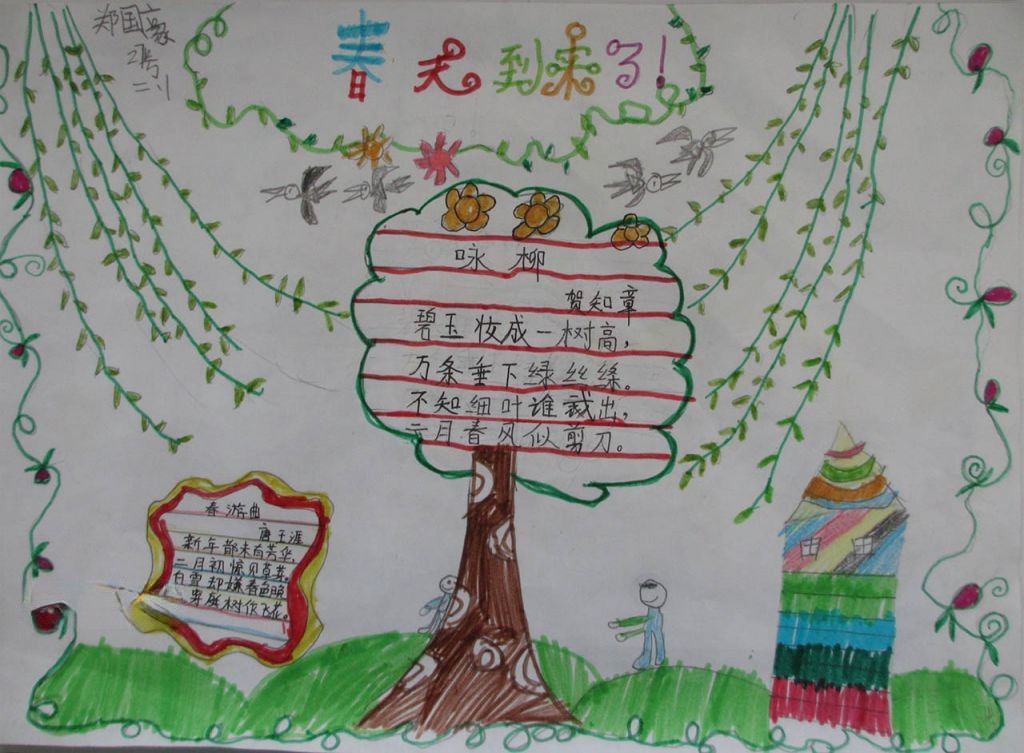 郑国豪
2号
二.1
春天到来了!
咏柳
贺知章
碧玉妆成一树高,
万条垂下绿丝绦。
不知细叶谁裁出,
二月春风似剪刀。
春游曲
唐王涯
新年都未有芳华,
二月初惊见草芽。
白雪却嫌春色晚,
穿庭树作飞花。